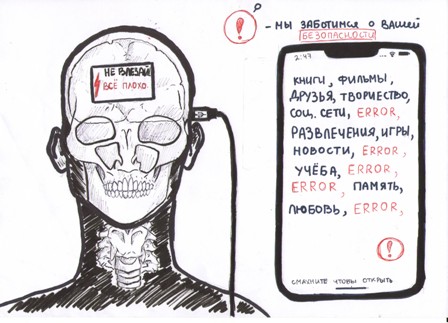 - МЫ ЗАБОТИМСЯ О ВАШЕЙ
БЕЗОПАСНОСТИ
НЕ ВЛЕЗАЙ
ВСЁ ПЛОХО
2:47
КНИГИ, ФИЛЬМЫ,
ДРУЗЬЯ, ТВОРЧЕСТВО,
СОЦ. СЕТИ, ERROR,
РАЗВЛЕЧЕНИЯ, ИГРЫ,
НОВОСТИ, ERROR,
УЧЁБА, ERROR,
ERROR, ПАМЯТЬ,
ЛЮБОВЬ, ERROR,
СМАХНИТЕ ЧТОБЫ ОТКРЫТЬ